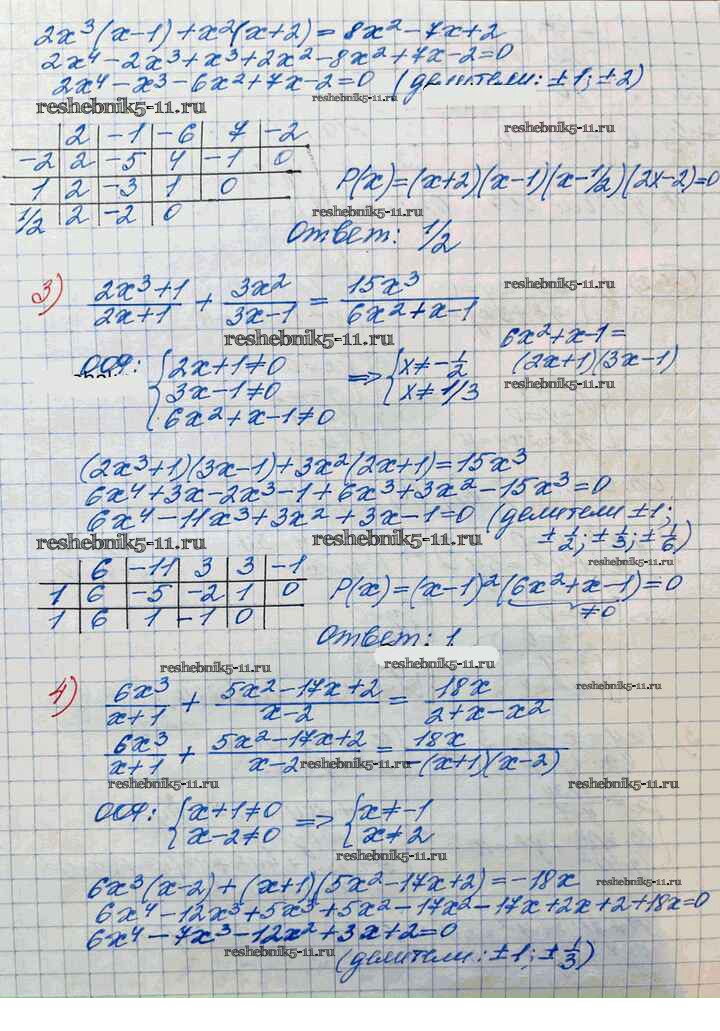 2x³(x-1)+x²(x+2)=8x²-7x+2
2x⁴-2x³+x³+2x²-8x²+7x-2=0
2x⁴-x³-6x²+7x-2=0 (делители: ±1; ±2)
reshebnik5-11.ru reshebnik5-11.ru reshebnik5-11.ru
2 -1 -6 7 -2
-2 2 -5 4 -1 0
1 2 -3 1 0
1/2 2 -2 0
reshebnik5-11.ru
P(x)=(x+2)(x-1)(x-1/2)(2x-2)=0
reshebnik5-11.ru
Ответ: 1/2
3) (2x³+1)/(2x+1) + 3x²/(3x-1) = 15x³/(6x²+x-1)
reshebnik5-11.ru
reshebnik5-11.ru
6x²+x-1=
(2x+1)(3x-1)
reshebnik5-11.ru
ООУ: {2x+1≠0 => {x≠-1/2
3x-1≠0 x≠1/3
6x²+x-1≠0
(2x³+1)(3x-1)+3x²(2x+1)=15x³
6x⁴+3x-2x³-1+6x³+3x²-15x³=0
6x⁴-11x³+3x²+3x-1=0 (делители ±1;
±1/2; ±1/3; ±1/6)
reshebnik5-11.ru reshebnik5-11.ru reshebnik5-11.ru
6 -11 3 3 -1
1 6 -5 -2 1 0
1 6 1 -1 0
P(x)=(x-1)²(6x²+x-1)=0
≠0
Ответ: 1
reshebnik5-11.ru reshebnik5-11.ru
4) 6x³/(x+1) + (5x²-17x+2)/(x-2) = 18x/(2+x-x²)
reshebnik5-11.ru
6x³/(x+1) + (5x²-17x+2)/(x-2) = 18x/(-(x+1)(x-2))
reshebnik5-11.ru reshebnik5-11.ru reshebnik5-11.ru
ООУ: {x+1≠0 => {x≠-1
x-2≠0 x≠2
reshebnik5-11.ru
6x³(x-2)+(x+1)(5x²-17x+2)=-18x
reshebnik5-11.ru
6x⁴-12x³+5x³+5x²-17x²-17x+2x+2+18x=0
6x⁴-7x³-12x²+3x+2=0
reshebnik5-11.ru
(делители: ±1; ±1/3)